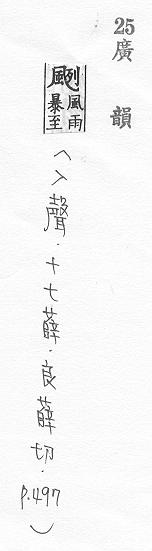 25
廣韻
颲 風雨
暴至
（入聲．十七薛．良薛切．
p.497）